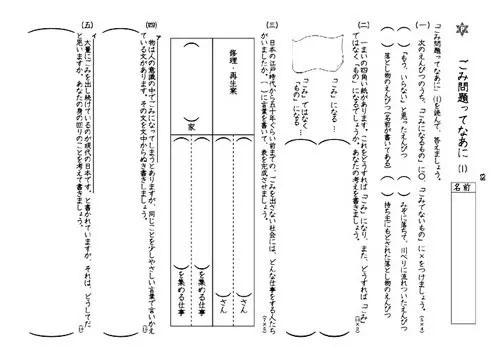 ごみ問題ってなあに (1)
名前
「ごみ問題ってなあに」(1)を読んで、答えましょう。
(一) 次のえんぴつのうち、「ごみになるもの」に○、「ごみでないもの」に×をつけましょう。
( )「もう、いらない」と思ったえんぴつ
( ) みぞに落ちて、川べりに流れついたえんぴつ
( ) 落とし物のえんぴつ(名前が書いてある)
( ) 持ち主にもどされた落とし物のえんぴつ
(二) 一まいの四角い紙があります。これをどうすれば「ごみ」になり、また、どうすれば「ごみ」
ではなく「もの」になるでしょうか。あなたの考えを書きましょう。
「ごみ」になる…
「ごみ」ではなく
「もの」になる…
(三) 日本の江戸時代から五十年ぐらい前までの、ごみを出さない社会には、どんな仕事をする人たち
がいましたか。( )に言葉を書いて、表を完成させましょう。
修理・再生業
( )さん
( )さん
( )家
( )を集める仕事
( )を集める仕事
(四) 物は人の意識の中でごみになってしまうとありますが、同じことを少しやさしい言葉で言いかえ
ている文があります。その文を文中からぬき書きしましょう。
(五) 大量にごみを出し続けているのが現代の日本です。と書かれていますが、それは、どうしてだ
と思いますか。あなたの身の回りのことを考えて書きましょう。